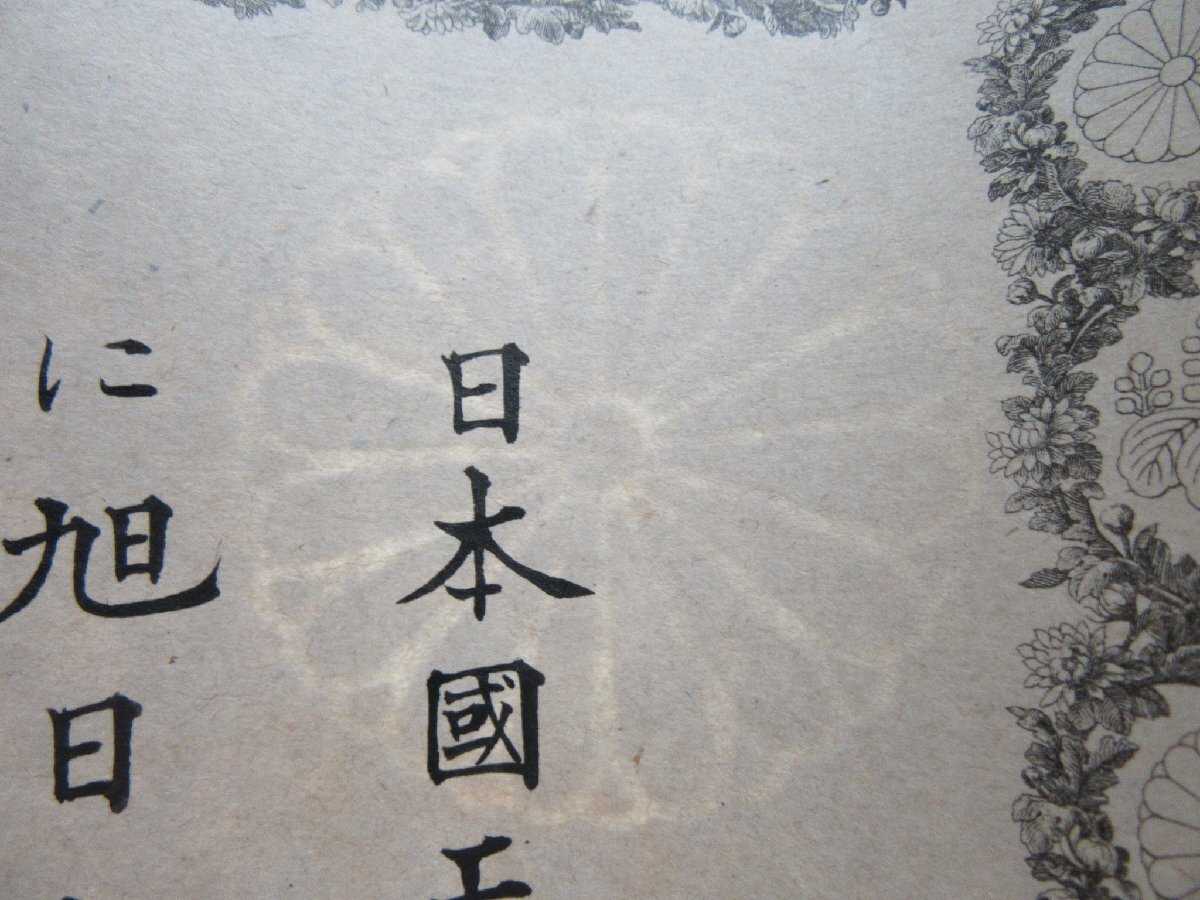 日本國
に旭日